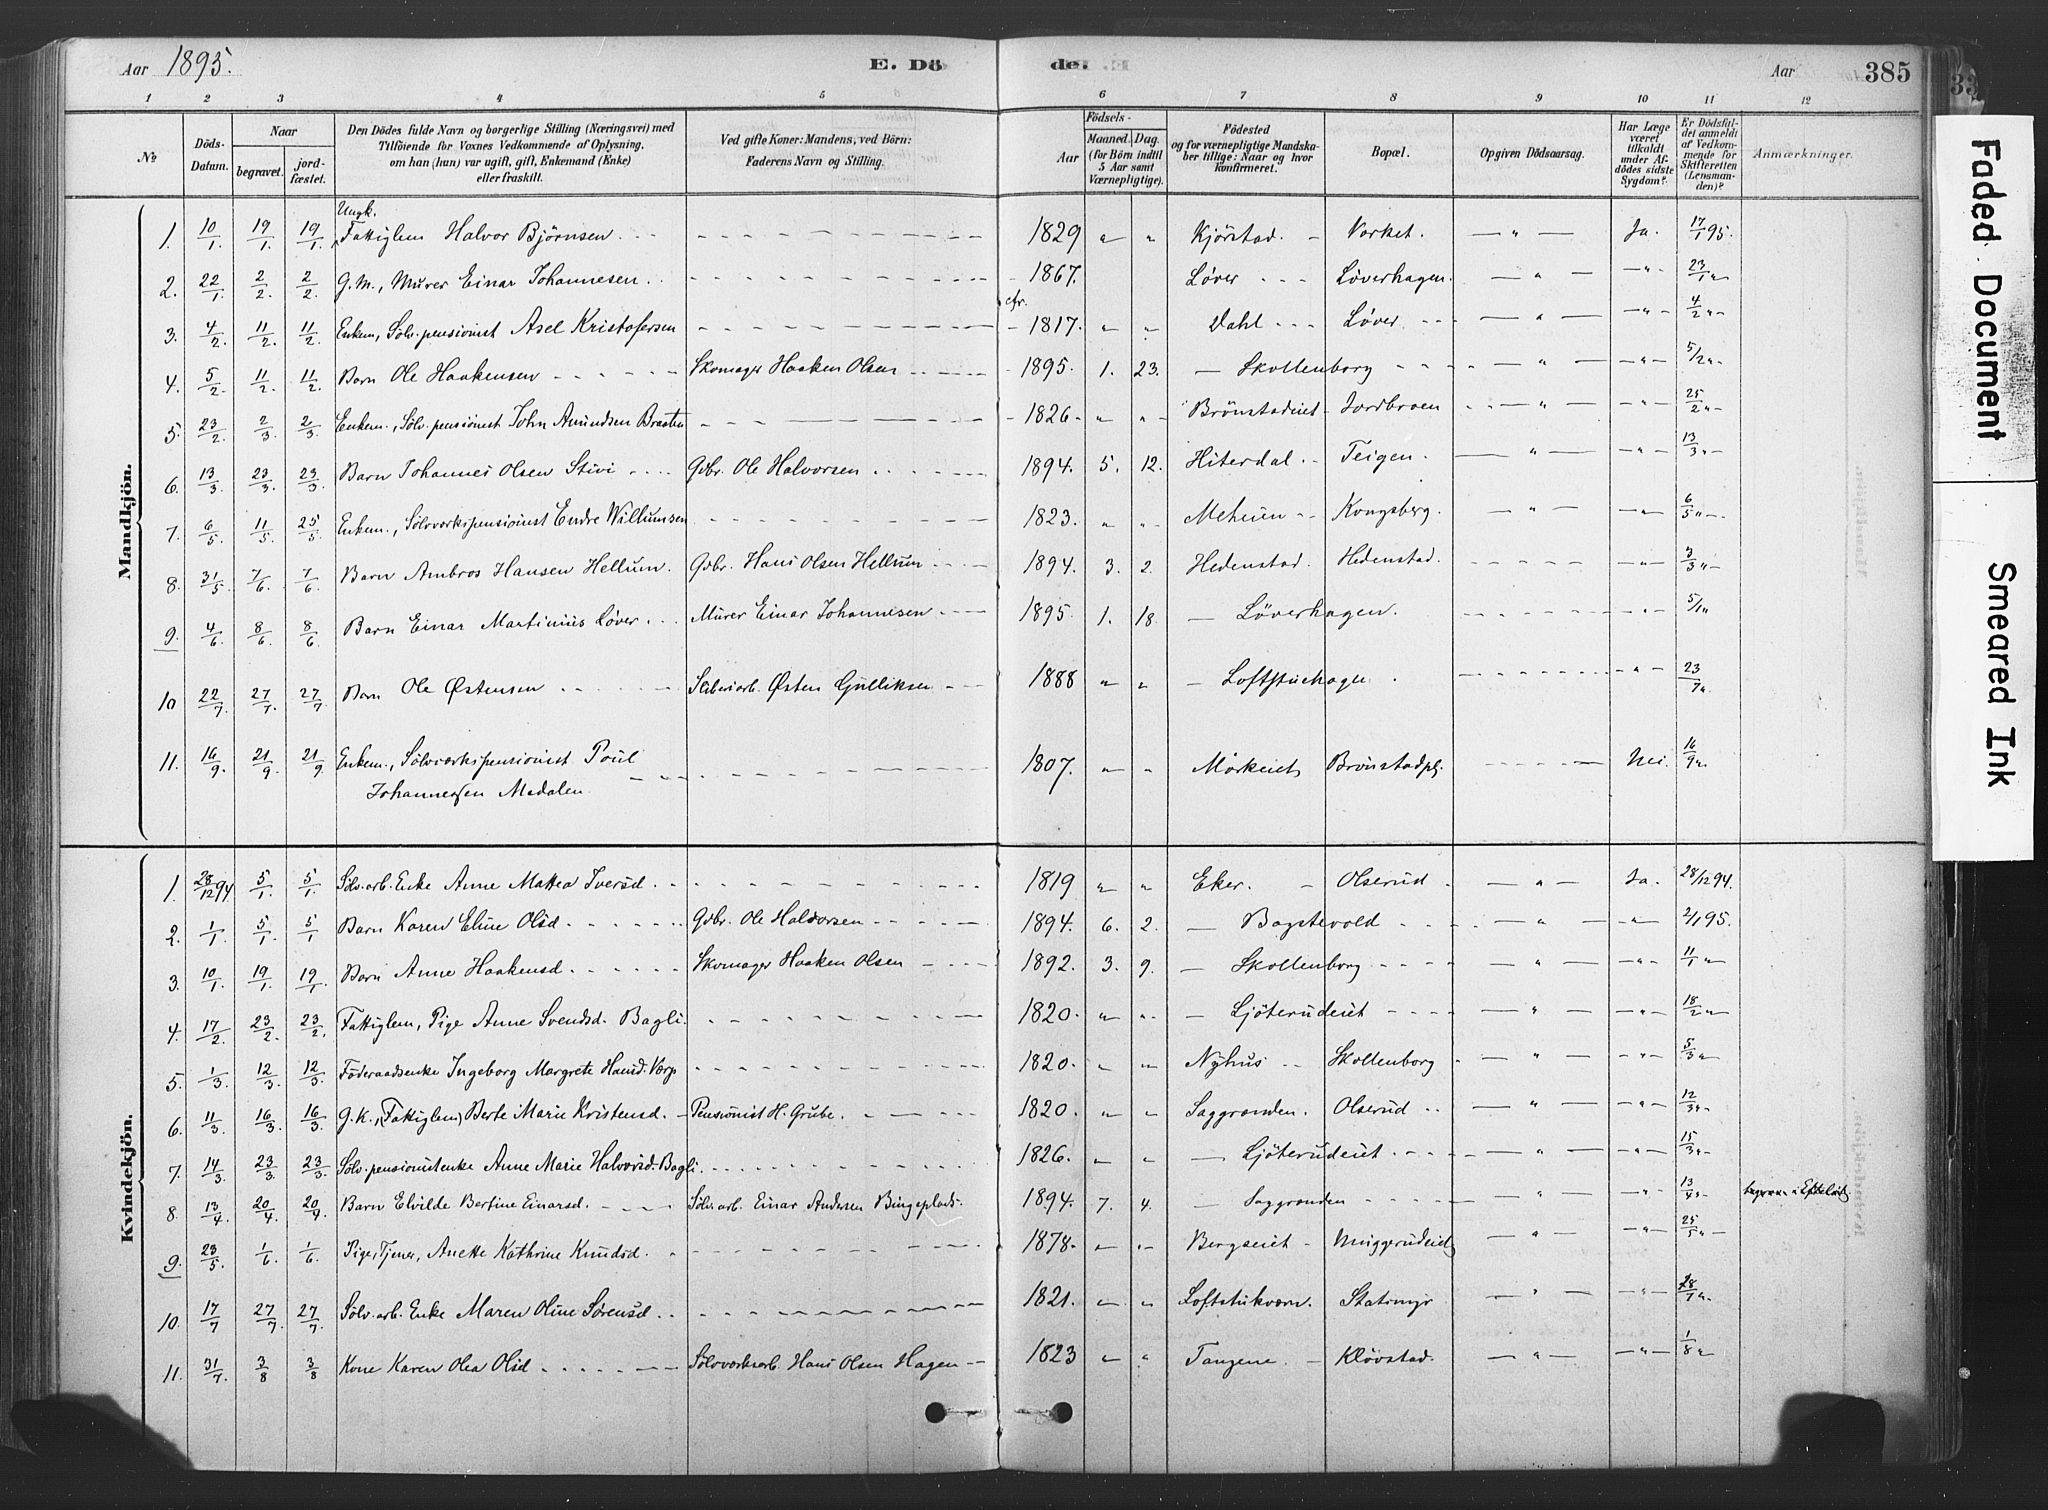 Aar 1895. E. Dö de. Aar 385
1 2 3 4 5 6 7 8 9 10 11 12
No. Döds-Datum. Naar begravet. jord-fæstet. Den Dödes fulde Navn og borgerlige Stilling (Næringsvei) med Tilföiende for Voxnes Vedkommende af Oplysning, om han (hun) var ugift, gift, Enkemand (Enke) eller fraskilt. Ved gifte Koner: Mandens, ved Börn: Faderens Navn og Stilling. Aar Födsels- Maaned. Dag. (for Börn indtil 5 Aar samt Værnepligtige). Födested og for værnepligtige Mandskaber tillige: Naar og hvor konfirmeret. Bopæl. Opgiven Dödsaarsag. Har Læge været tilkaldt under Afdödes sidste Sygdom? Er Dödsfaldet anmeldt af Vedkommende for Skifteretten (Lensmanden)? Anmærkninger.
Mandkjön.
Ungk.
1. 10/1. 19/1. 19/1. Fattiglem Halvor Björnsen 1829 " " Kjörstad. Vorket. " Ja. 17/1 95.
2. 22/1. 2/2. 2/2. G.M., Murer Einar Johannesen 1867. Løver Løverhagen. " " 23/1 "
3. 4/2. 11/2. 11/2. Enkem, Sølv.pensionist Asel Kristofersen cfr. 1817. " " Dahl Løver " " 4/2 "
4. 5/2. 11/2. 11/2. Barn Ole Haakensen Skomager Haaken Olsen 1895. 1. 23. Skollenborg " " 5/2 "
5. 23/2. 2/3. 2/3. Enkem., Sølv.pensionist John Amundsen Braaten 1826. " " Brönstadeiet Jordbroen " " 25/2 "
6. 13/3. 23/3. 23/3. Barn Johannes Olsen Stivi Gdbr. Ole Halvorsen 1894. 5. 12. Hiterdal Teigen. " " 13/3 "
7. 6/5. 11/5. 25/5. Enkem., Sølvverkspensionist Endre Willumsen 1823. " " Meheien Kongsberg. " " 6/5 "
8. 31/5. 7/6. 7/6. Barn Ambros Hansen Hellum. Gdbr. Hans Olsen Hellum 1894. 3. 2. Hedenstad. Hedenstad. " 3/3 "
9. 4/6. 8/6. 8/6. Barn Einar Martinius Løver Murer Einar Johannesen 1895. 1. 18. Løverhagen. " 5/1 "
10 22/7. 27/7. 27/7. Barn Ole Østensen Østen Gulliksen 1888 " " Loftstuehagen " 23/7 "
11. 16/9. 21/9. 21/9 Enkem., Sølvverkspensionist Poul 1807. " " Mörkeiet Brönstadpl. Nei. 16/9 "
Johannessen Medalen
Kvindekjön.
1. 28/12 94 5/1. 5/1. Sølv.arb. Enke Anne Mattea Iversd. 1819 " " Eker. Olserud " Ja. 28/12 94.
2. 1/1. 5/1. 5/1 Barn Karen Eline Olsd Gdbr. Ole Halvorsen 1894. 6. 2. Bagstevold " " 2/1 95.
3. 10/1. 19/1. 19/1. Barn Anne Haakensd. Skomager Haaken Olsen 1892. 3. 9. Skollenborg " " 11/1 "
4. 17/2. 23/2. 23/2. Fattiglem, Pige Anne Svendsd. Bagli. 1820. " " Ljöterudeiet " " 18/2 "
5. 1/3. 12/3. 12/3. Föderaadsenke Ingeborg Margrete Hansd. 1820. " " Nyhus Skollenborg " " 5/3 "
6. 11/3. 16/3. 16/3. G.k., (Fattiglem) Berte Marie Kristensd. Pensionist H. Grube. 1820. " " Saggranden. Olserud " " 12/3 "
7. 14/3. 23/3. 23/3. Sølv.pensionistenke Anne Marie Halvorsd. Bagli. 1826. " " Ljöterudeiet " " 15/3 "
8. 13/4. 20/4. 20/4. Barn Elvilde Bertine Einarsd. Sølv.arb. Einar Andersen Bingeplads. 1894. 7. 4. Saggranden " " 13/4 " begraven i Efteløt
9. 23/5. 1/6. 1/6. Pige, Tjener, Anette Kathrine Knudsd. 1878. " " Bergseiet Muggerudeiet " " 25/5 "
10. 17/7 27/7. 27/7. Sølv.arb. Enke Maren Oline Sörensd 1821. " " Loftstukværn. Statsmyr " " 28/7 "
11. 31/7. 3/8 3/8 Kone Karen Olea Olsd Sølvverksarb. Hans Olsen Hagen 1823 " " Tangene Klövstad. " " 1/8 "
Faded Document
Smeared Ink